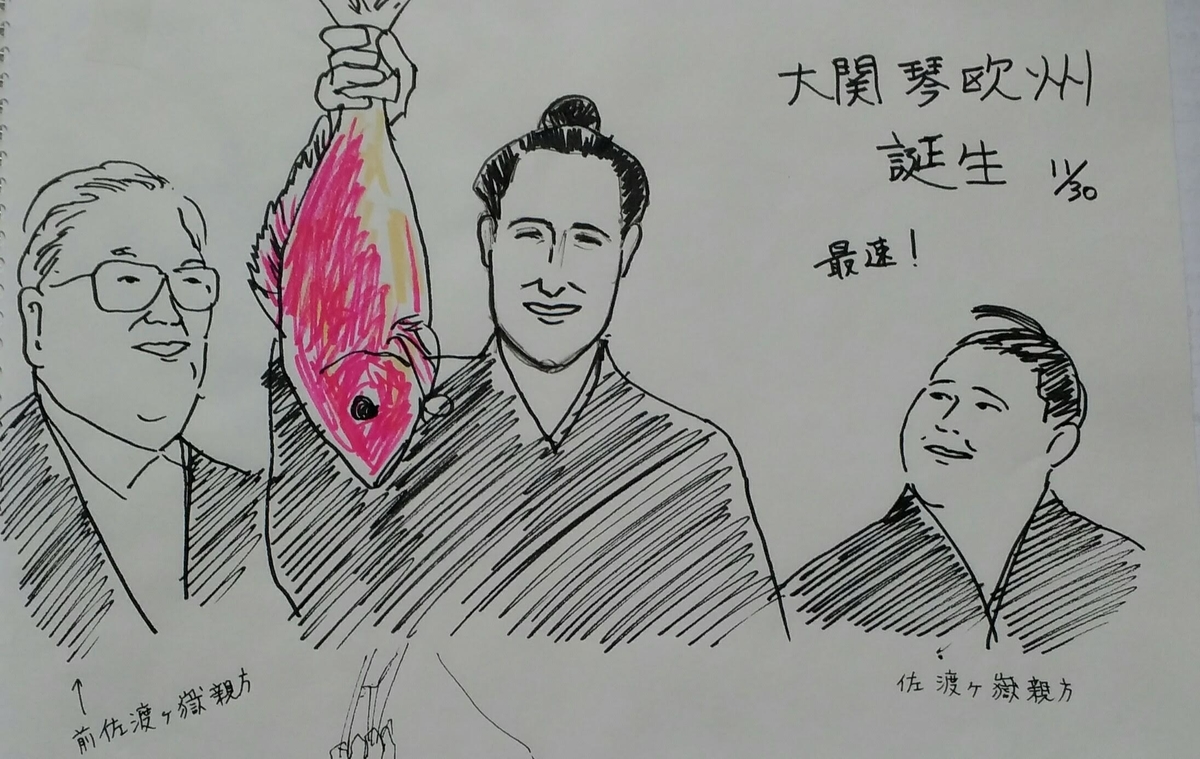 大関琴欧州
誕生 11/30
最速!
前佐渡ヶ嶽親方
佐渡ヶ嶽親方